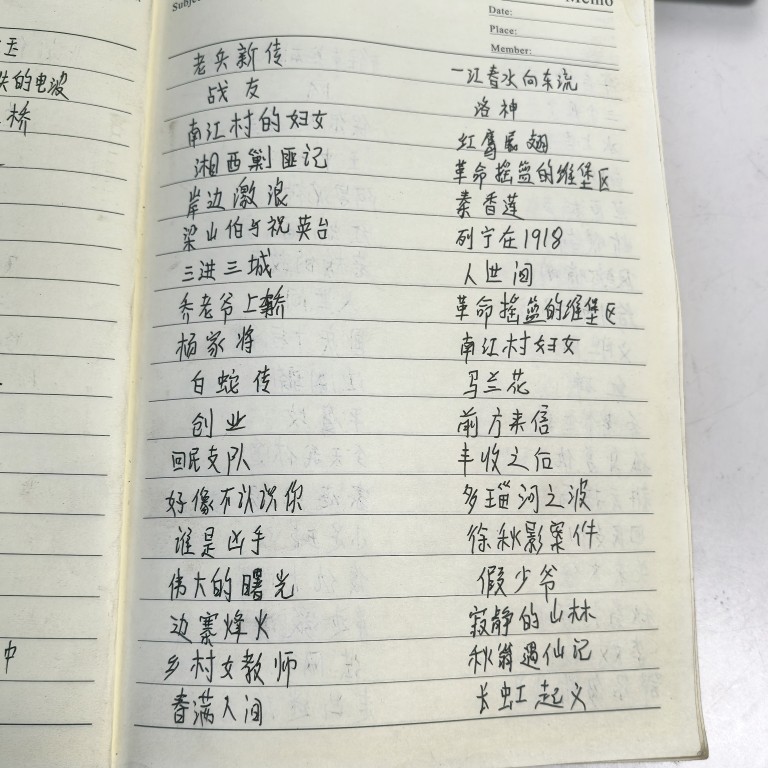 Memo
Date:
Place:
Member:
的电波
桥
中
老兵新传
战友
南江村的妇女
湘西剿匪记
岸边激浪
梁山伯与祝英台
三进三城
乔老爷上轿
杨家将
白蛇传
创业
回民支队
好像不认识你
谁是凶手
伟大的曙光
边寨烽火
乡村女教师
春满人间
一江春水向东流
洛神
红鹰展翅
革命摇篮的维堡区
秦香莲
列宁在1918
人世间
革命摇篮的维堡区
南江村妇女
马兰花
前方来信
丰收之后
多瑙河之波
徐秋影案件
假少爷
寂静的山林
秋翁遇仙记
长虹起义